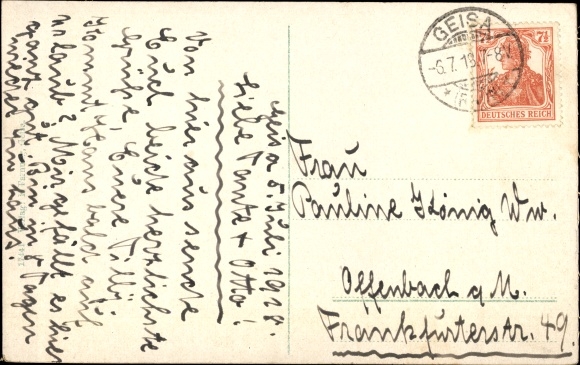 Geisa 5. Juli 1918.
Liebe Tante + Otto!
Von hier aus sende
Euch beide herzlichste
Grüße, Euere Tilly.
Kommt Ham bald auf
Urlaub? Mir gefällt es hier
ganz gut. Bin in 8 Tagen
wieder zu Haus.
GEISA
-6.7.18. 7-8V.
7½
DEUTSCHES REICH
Frau
Pauline König Ww.
Offenbach a. M.
Frankfurterstr. 49.